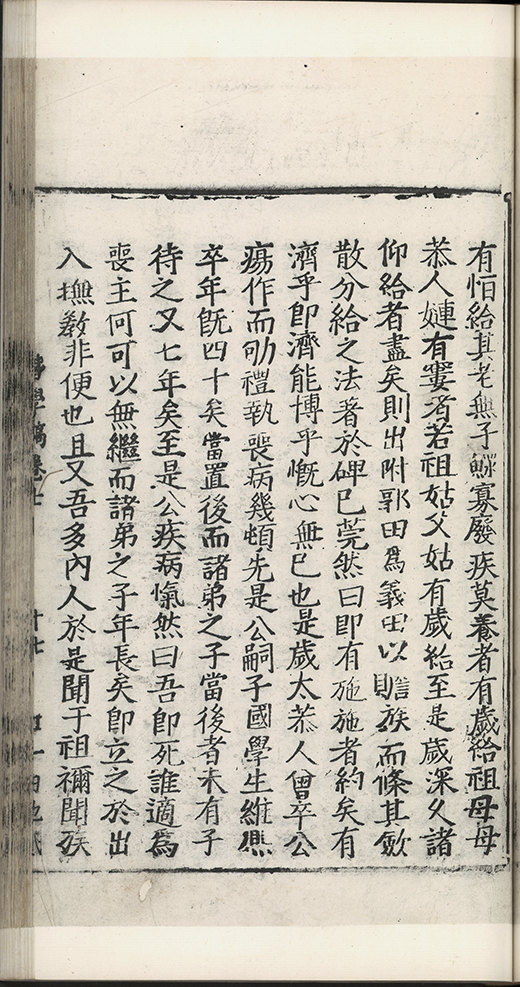 有恤給其老無子鰥寡廢疾莫養者有歲給祖母母
恭人嫥有寠者若祖姑父姑有歲給至是歲深久諸
仰給者盡矣則出附郭田為義田以贍族而條其斂
散分給之法著於碑已莞然曰即有施施者約矣有
濟乎即濟能博乎慨心無已也是歲太恭人曾卒公
瘍作而劬禮執喪病幾頓先是公嗣子國學生維
卒年旣四十矣當置後而諸弟之子當後者未有子
待之又七年矣至是公疾病愾然曰吾即死誰適為
喪主何可以無繼而諸弟之子年長矣即立之於出
入撫教非便也且又吾多內人於是聞于祖禰聞族
學稿卷十
十七